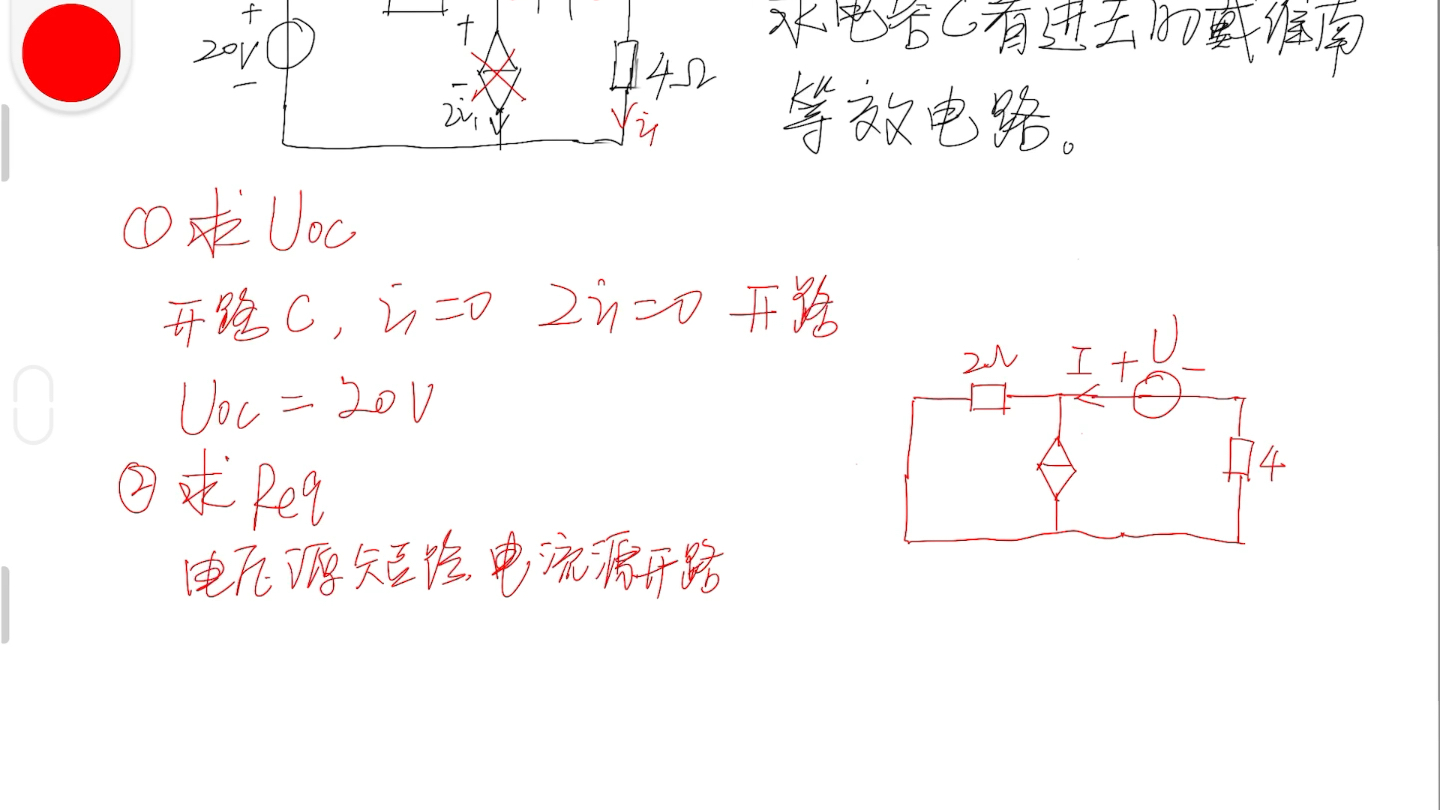 求电容C看进去的戴维南
等效电路。
+
20V
-
+
-
2i₁
4Ω
i₁
① 求 Uoc
开路C, i₁=0 2i₁=0 开路
Uoc = 20V
② 求 Req
电压源短路, 电流源开路
2Ω I + U -
4